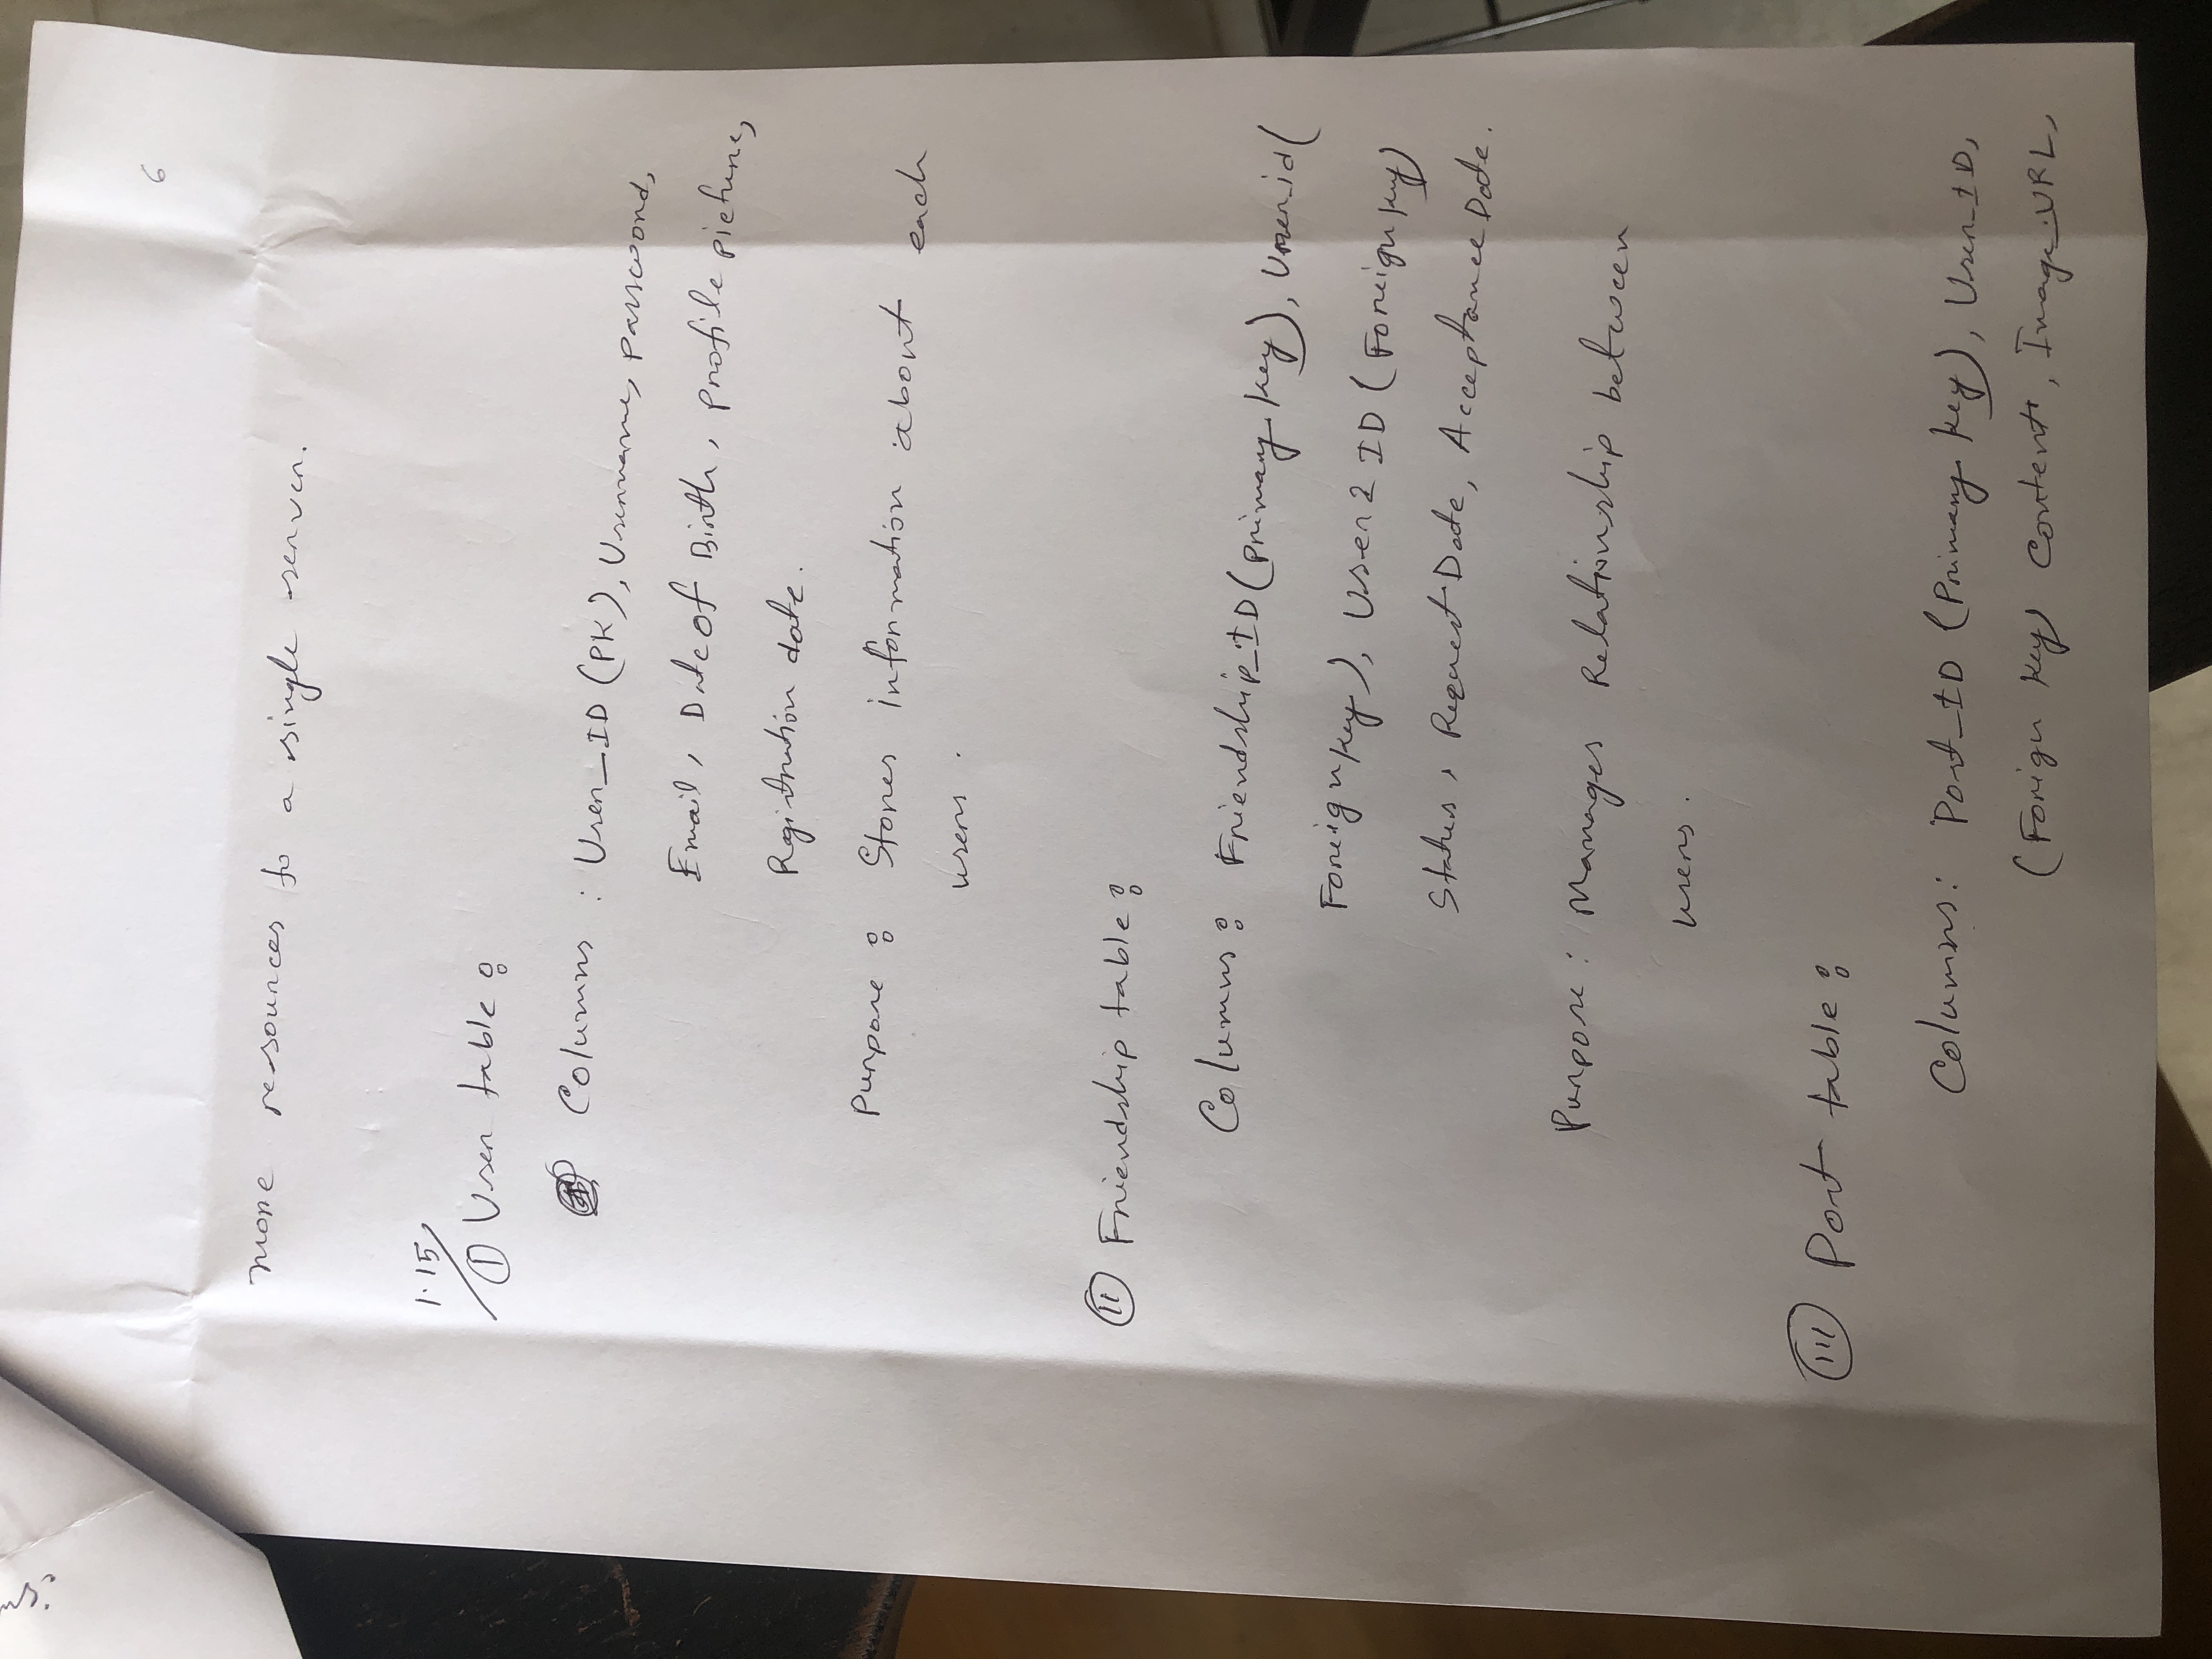 6
more resources to a single server.
1.15
① User table :
Columns : User_ID (PK), Username, password,
Email, Date of Birth, profile picture,
Rgistration date.
purpose : Stores information about each
users.
⑪ Friendship table :
Columns : Friendship_ID (primary key), User_id (
Foreign key), User 2 ID (Foreign key)
Status, Request Date, Acceptance Date.
Purpose : Manages Relationship between
users.
(III) Post table :
Columns : Post_ID (Primary key), User_ID,
(Forign key) content, Image_URL,